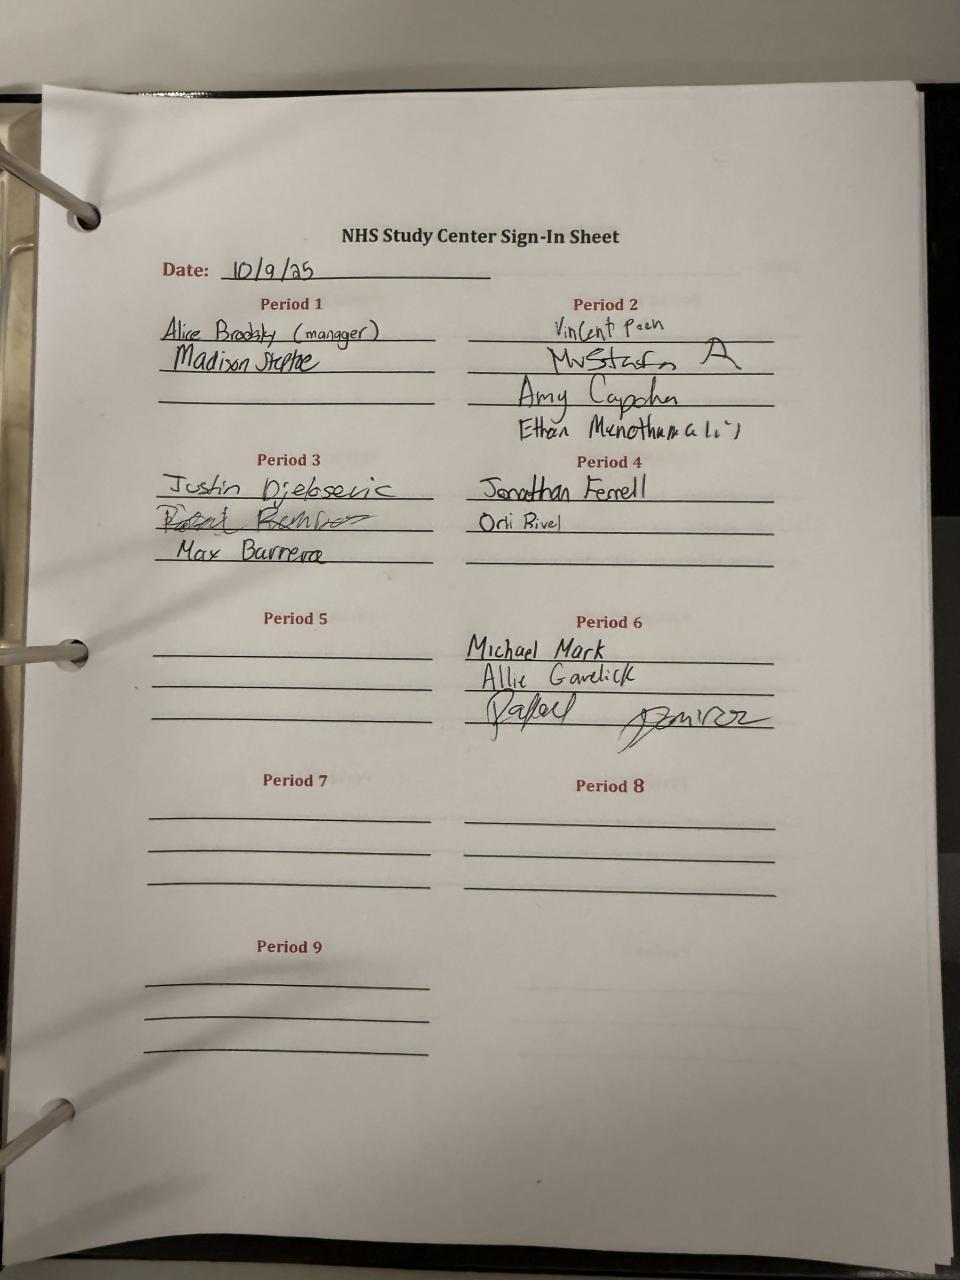 NHS Study Center Sign-In Sheet
Date: 10/9/25
Period 1
Alice Brodsky (manager)
Madison Steptoe
Period 2
Vincent
Mustafa A
Amy
Ethan
Period 3
Justin Djelosevic
Max Barrera
Period 4
Jonathan Ferrell
Orli Rivel
Period 5
Period 6
Michael Mark
Allie Gavelick
Rafael Ramirez
Period 7
Period 8
Period 9